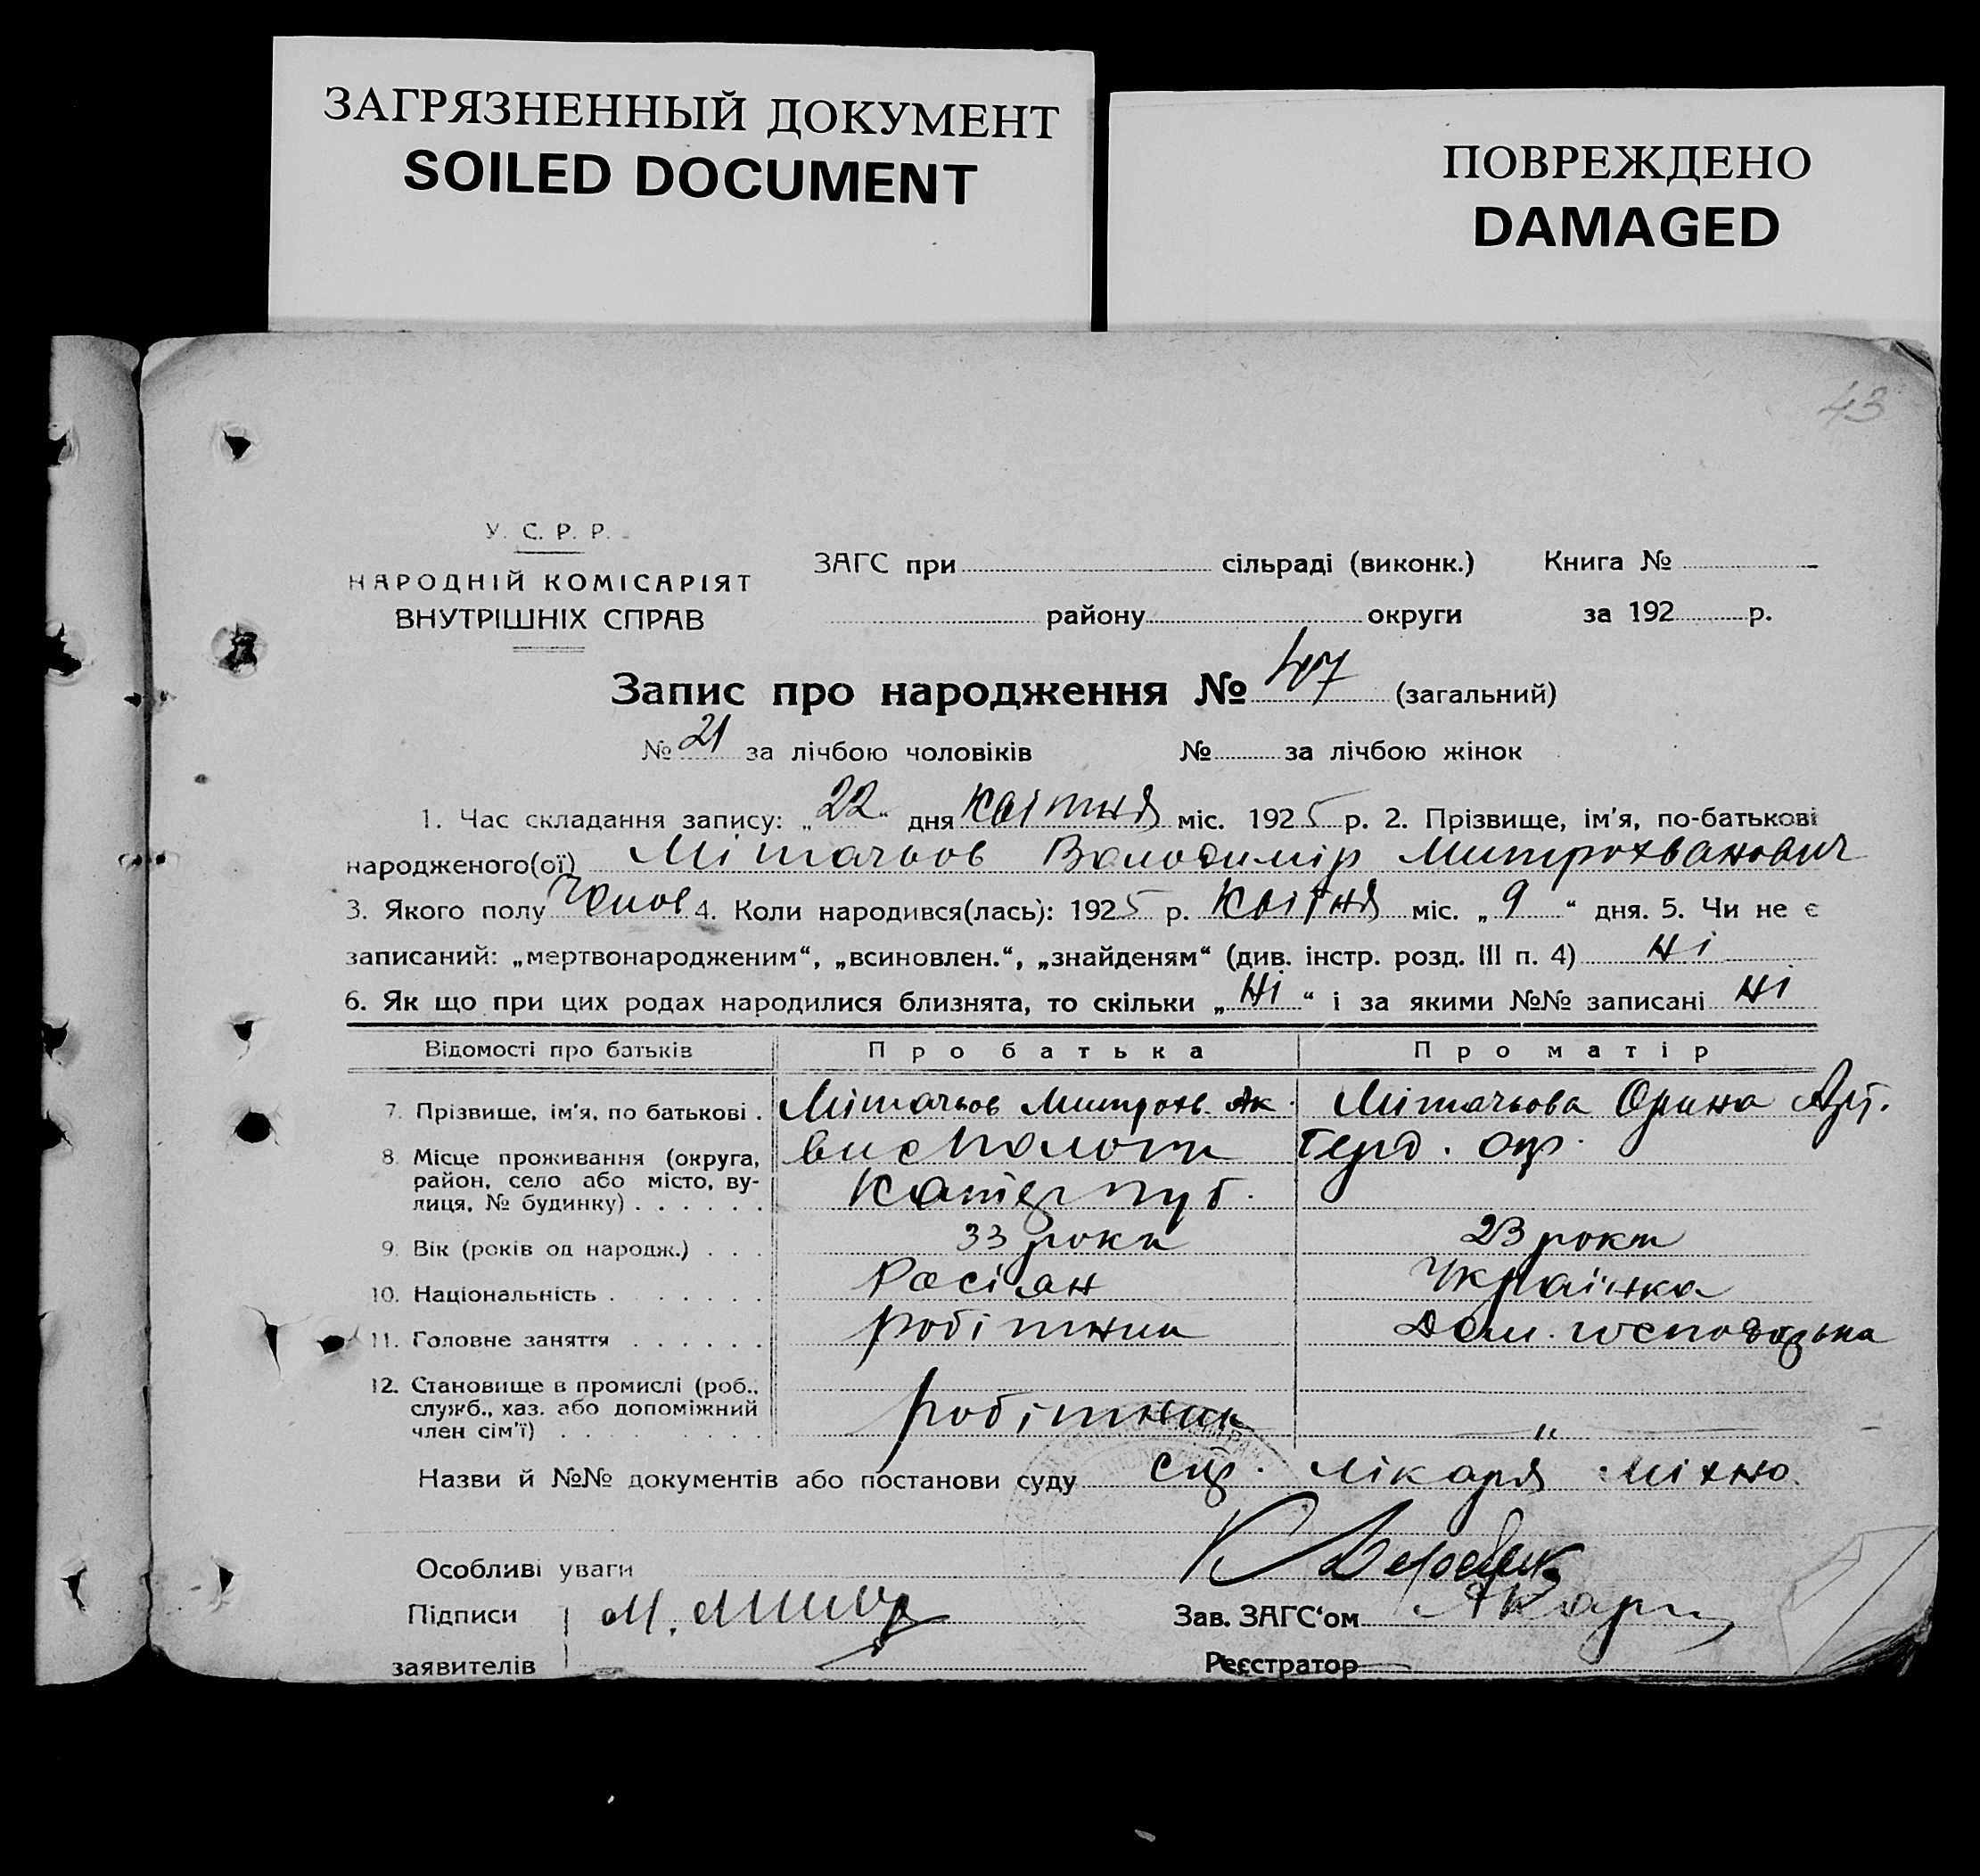 ЗАГРЯЗНЕННЫЙ ДОКУМЕНТ
SOILED DOCUMENT
ПОВРЕЖДЕНО
DAMAGED
43
У. С. Р. Р.
НАРОДНІЙ КОМІСАРІЯТ
ВНУТРІШНІХ СПРАВ
ЗАГС при сільраді (виконк.) Книга №
району округи за 192 р.
Запис про народження № 47 (загальний)
№ 21 за лічбою чоловіків № за лічбою жінок
1. Час складання запису: „22“ дня квітня міс. 1925 р. 2. Прізвище, ім'я, по-батькові
народженого(ої) Мітачьов Володимір Митрохванович
3. Якого полу Чолов 4. Коли народився(лась): 1925 р. Квітня міс. „9“ дня. 5. Чи не є
записаний: „мертвонародженим“, „всиновлен.“, „знайденям“ (див. інстр. розд. III п. 4) Ні
6. Як що при цих родах народилися близнята, то скільки „Ні“ і за якими №№ записані Ні
Відомості про батьків Про батька Про матір
7. Прізвище, ім'я, по батькові . Мітачьов Митрохв. Ак. Мітачьова Орина
8. Місце проживання (округа,
район, село або місто, ву-
лиця, № будинку) . . . . . .
9. Вік (років од народж.) . . . 33 роки 23 роки
10. Національність . . . . . . Росіян Українка
11. Головне заняття . . . . . . робітник Дом. господарька
12. Становище в промислі (роб.,
служб., хаз. або допоміжний
член сім'ї) . . . . . . . робітник — „ —
Назви й №№ документів або постанови суду спр. лікаря Міхно.
Особливі уваги
Підписи М.
Зав. ЗАГС'ом
заявителів Реєстратор